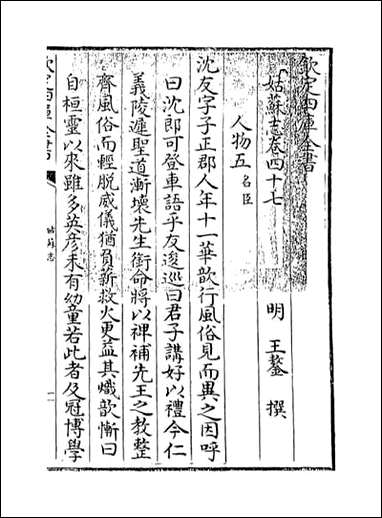 欽定四庫全書
姑蘇志卷四十七
明 王鏊 撰
人物五 名臣
沈友字子正郡人年十一華歆行風俗見而異之因呼
曰沈郎可登車語乎友逡巡曰君子講好以禮今仁
義陵遲聖道漸壞先生銜命將以裨補先王之教整
齊風俗而輕脱威儀猶負薪救火更益其熾歆慚曰
自桓靈以來雖多英彦未有幼童若此者及冠博學
欽定四庫全書
姑蘇志
一